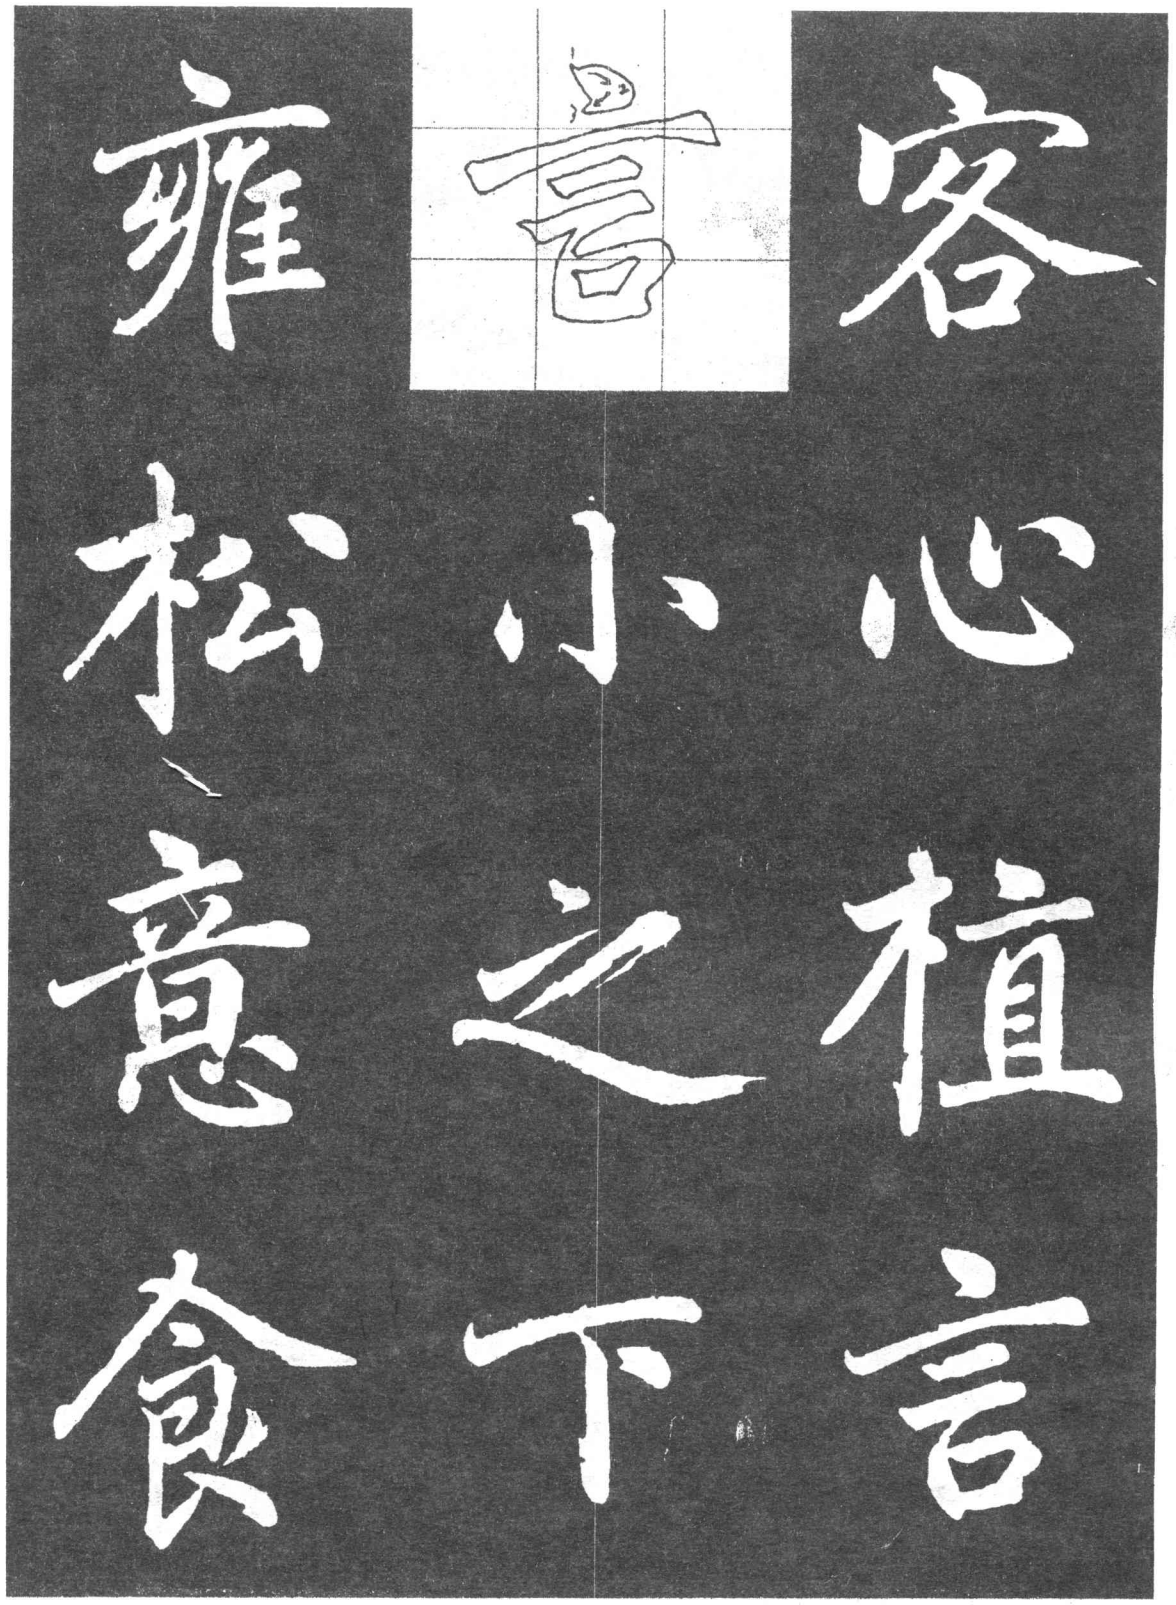 客心植言
言小之下
雍松意食